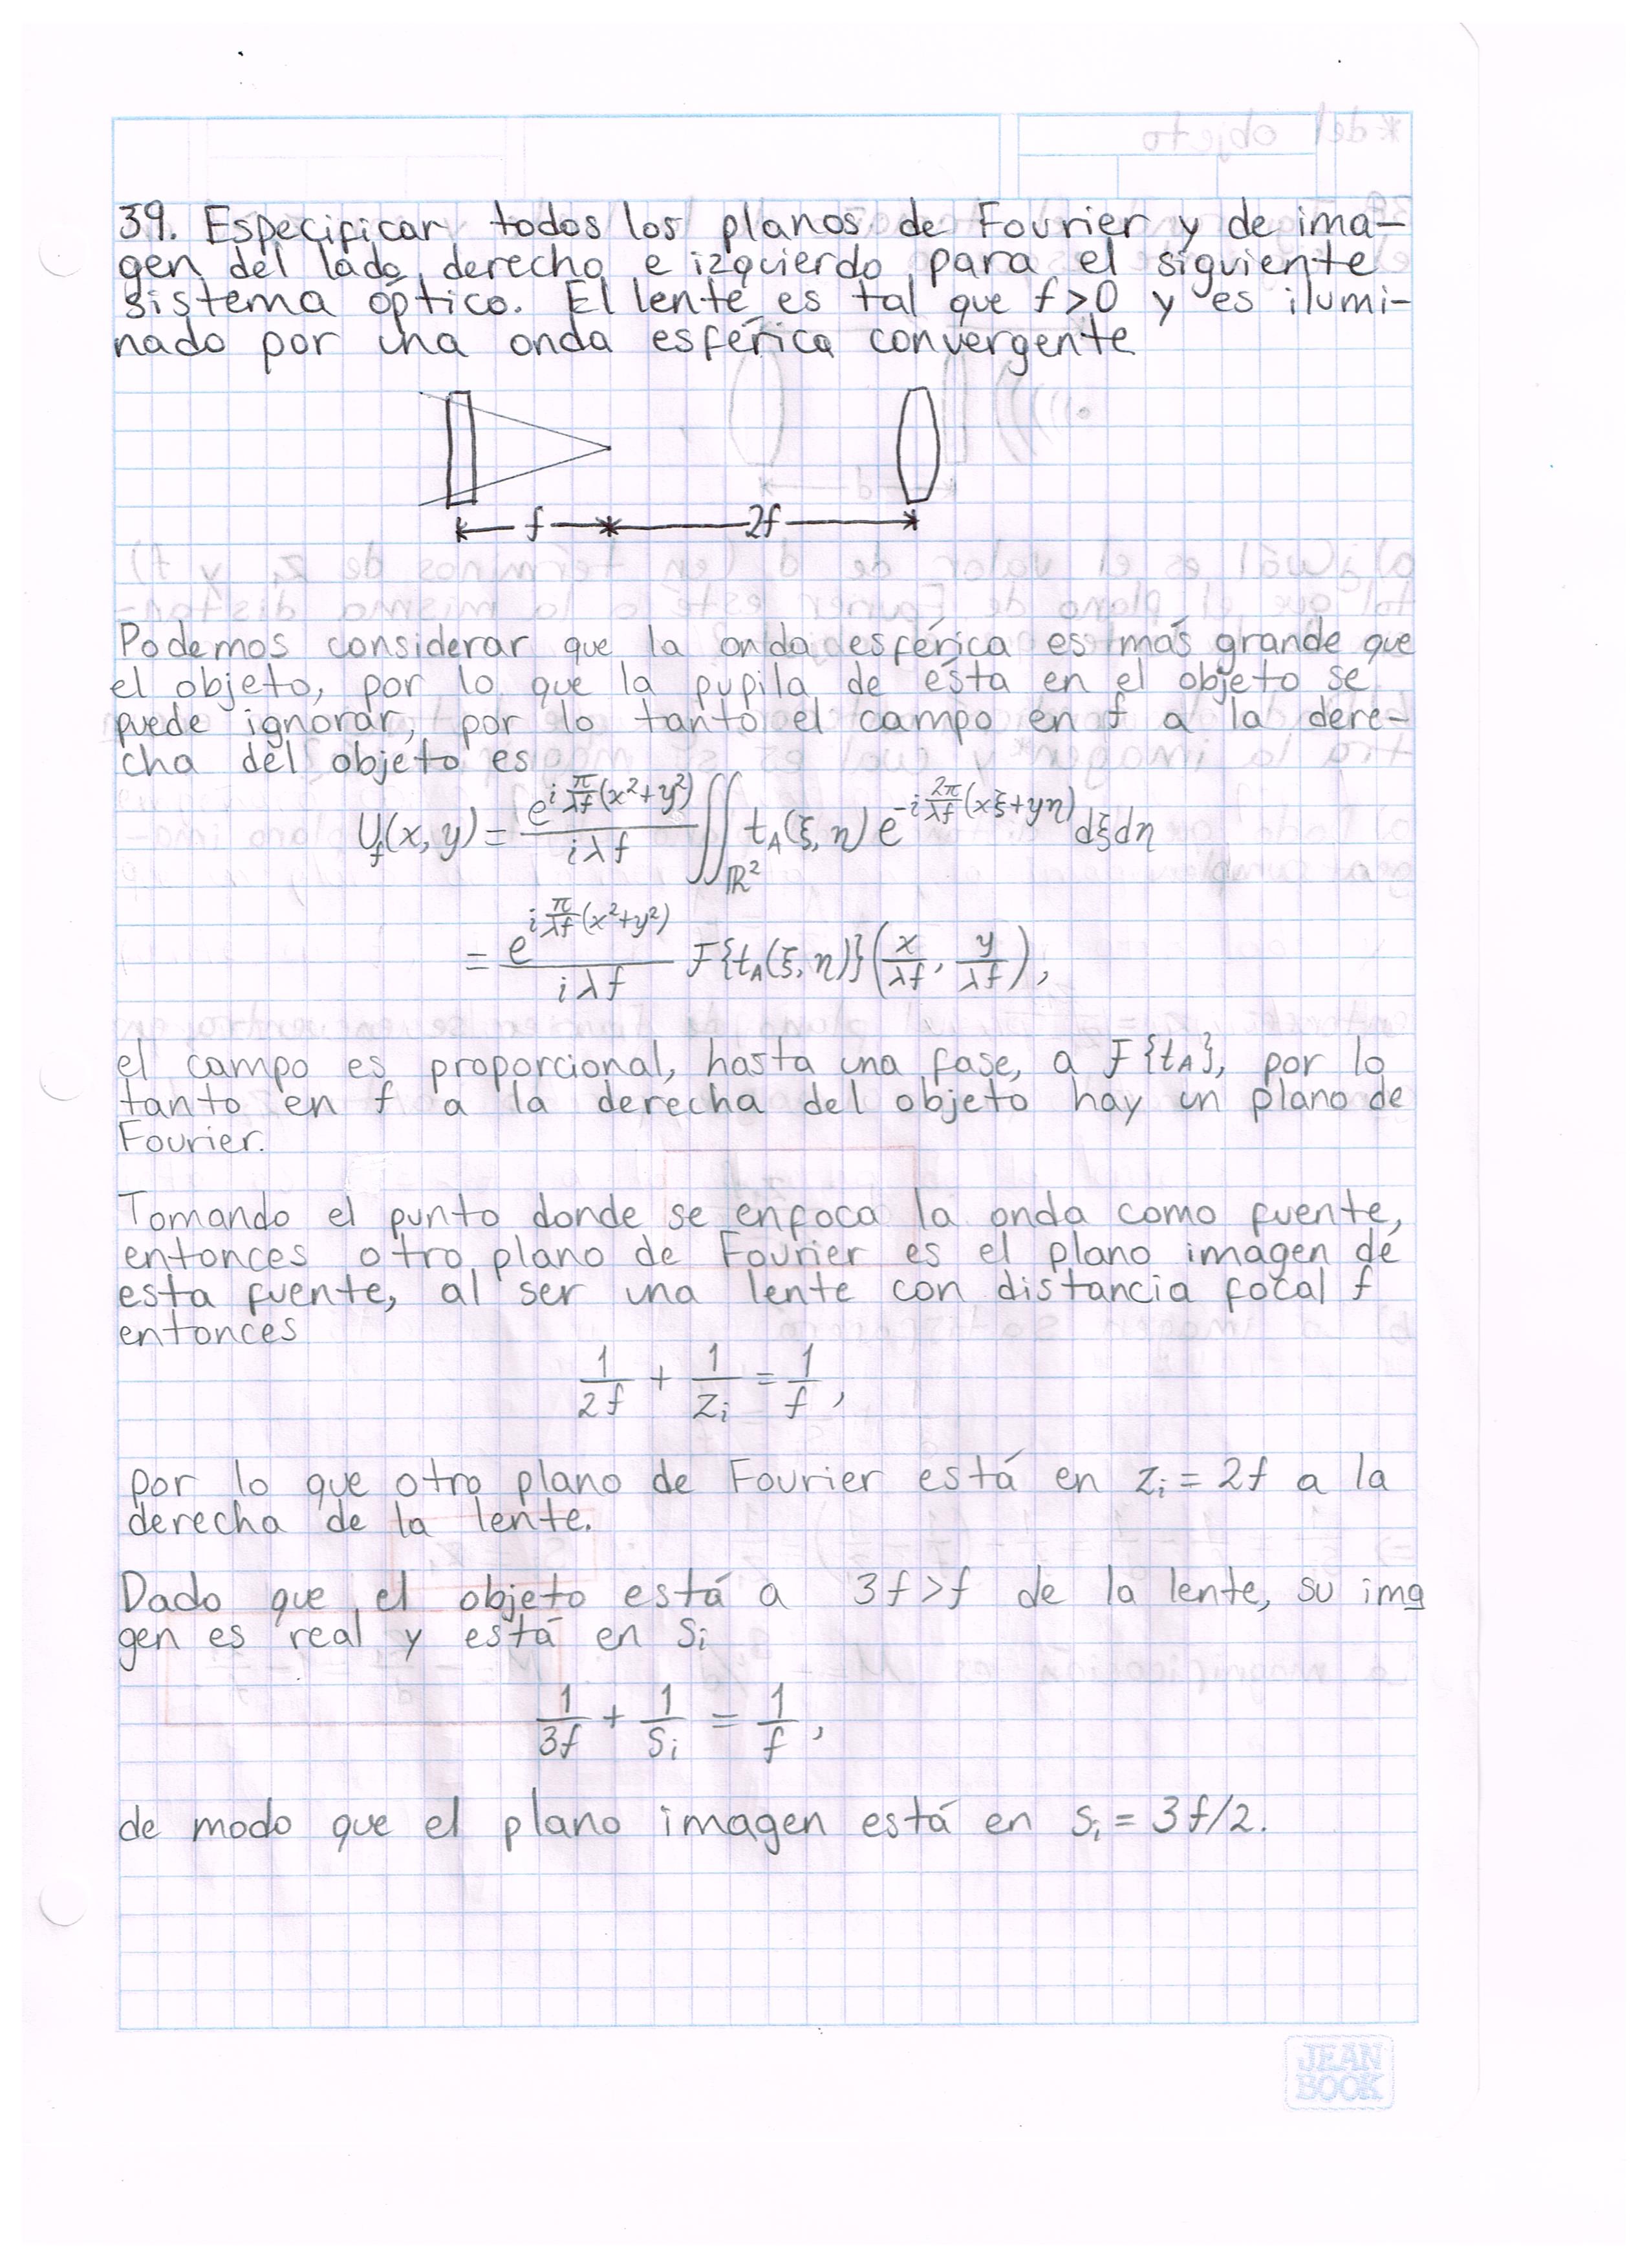 39. Especificar todos los planos de Fourier y de ima-
gen del lado derecho e izquierdo para el siguiente
sistema óptico. El lente es tal que f>0 y es ilumi-
nado por una onda esférica convergente
f 2f
Podemos considerar que la onda esférica es más grande que
el objeto, por lo que la pupila de ésta en el objeto se
puede ignorar, por lo tanto el campo en f a la dere-
cha del objeto es
U_f(x,y) = e^{i π/λf (x²+y²)} / iλf ∬_{ℝ²} t_A(ξ,η) e^{-i 2π/λf (xξ+yη)} dξdη
= e^{i π/λf (x²+y²)} / iλf F{t_A(ξ,η)}(x/λf, y/λf),
el campo es proporcional, hasta una fase, a F{t_A}, por lo
tanto en f a la derecha del objeto hay un plano de
Fourier.
Tomando el punto donde se enfoca la onda como fuente,
entonces otro plano de Fourier es el plano imagen de
esta fuente, al ser una lente con distancia focal f
entonces
1/2f + 1/z_i = 1/f,
por lo que otro plano de Fourier está en z_i = 2f a la
derecha de la lente.
Dado que el objeto está a 3f>f de la lente, su ima
gen es real y está en s_i
1/3f + 1/s_i = 1/f,
de modo que el plano imagen está en s_i = 3f/2.
JEAN
BOOK